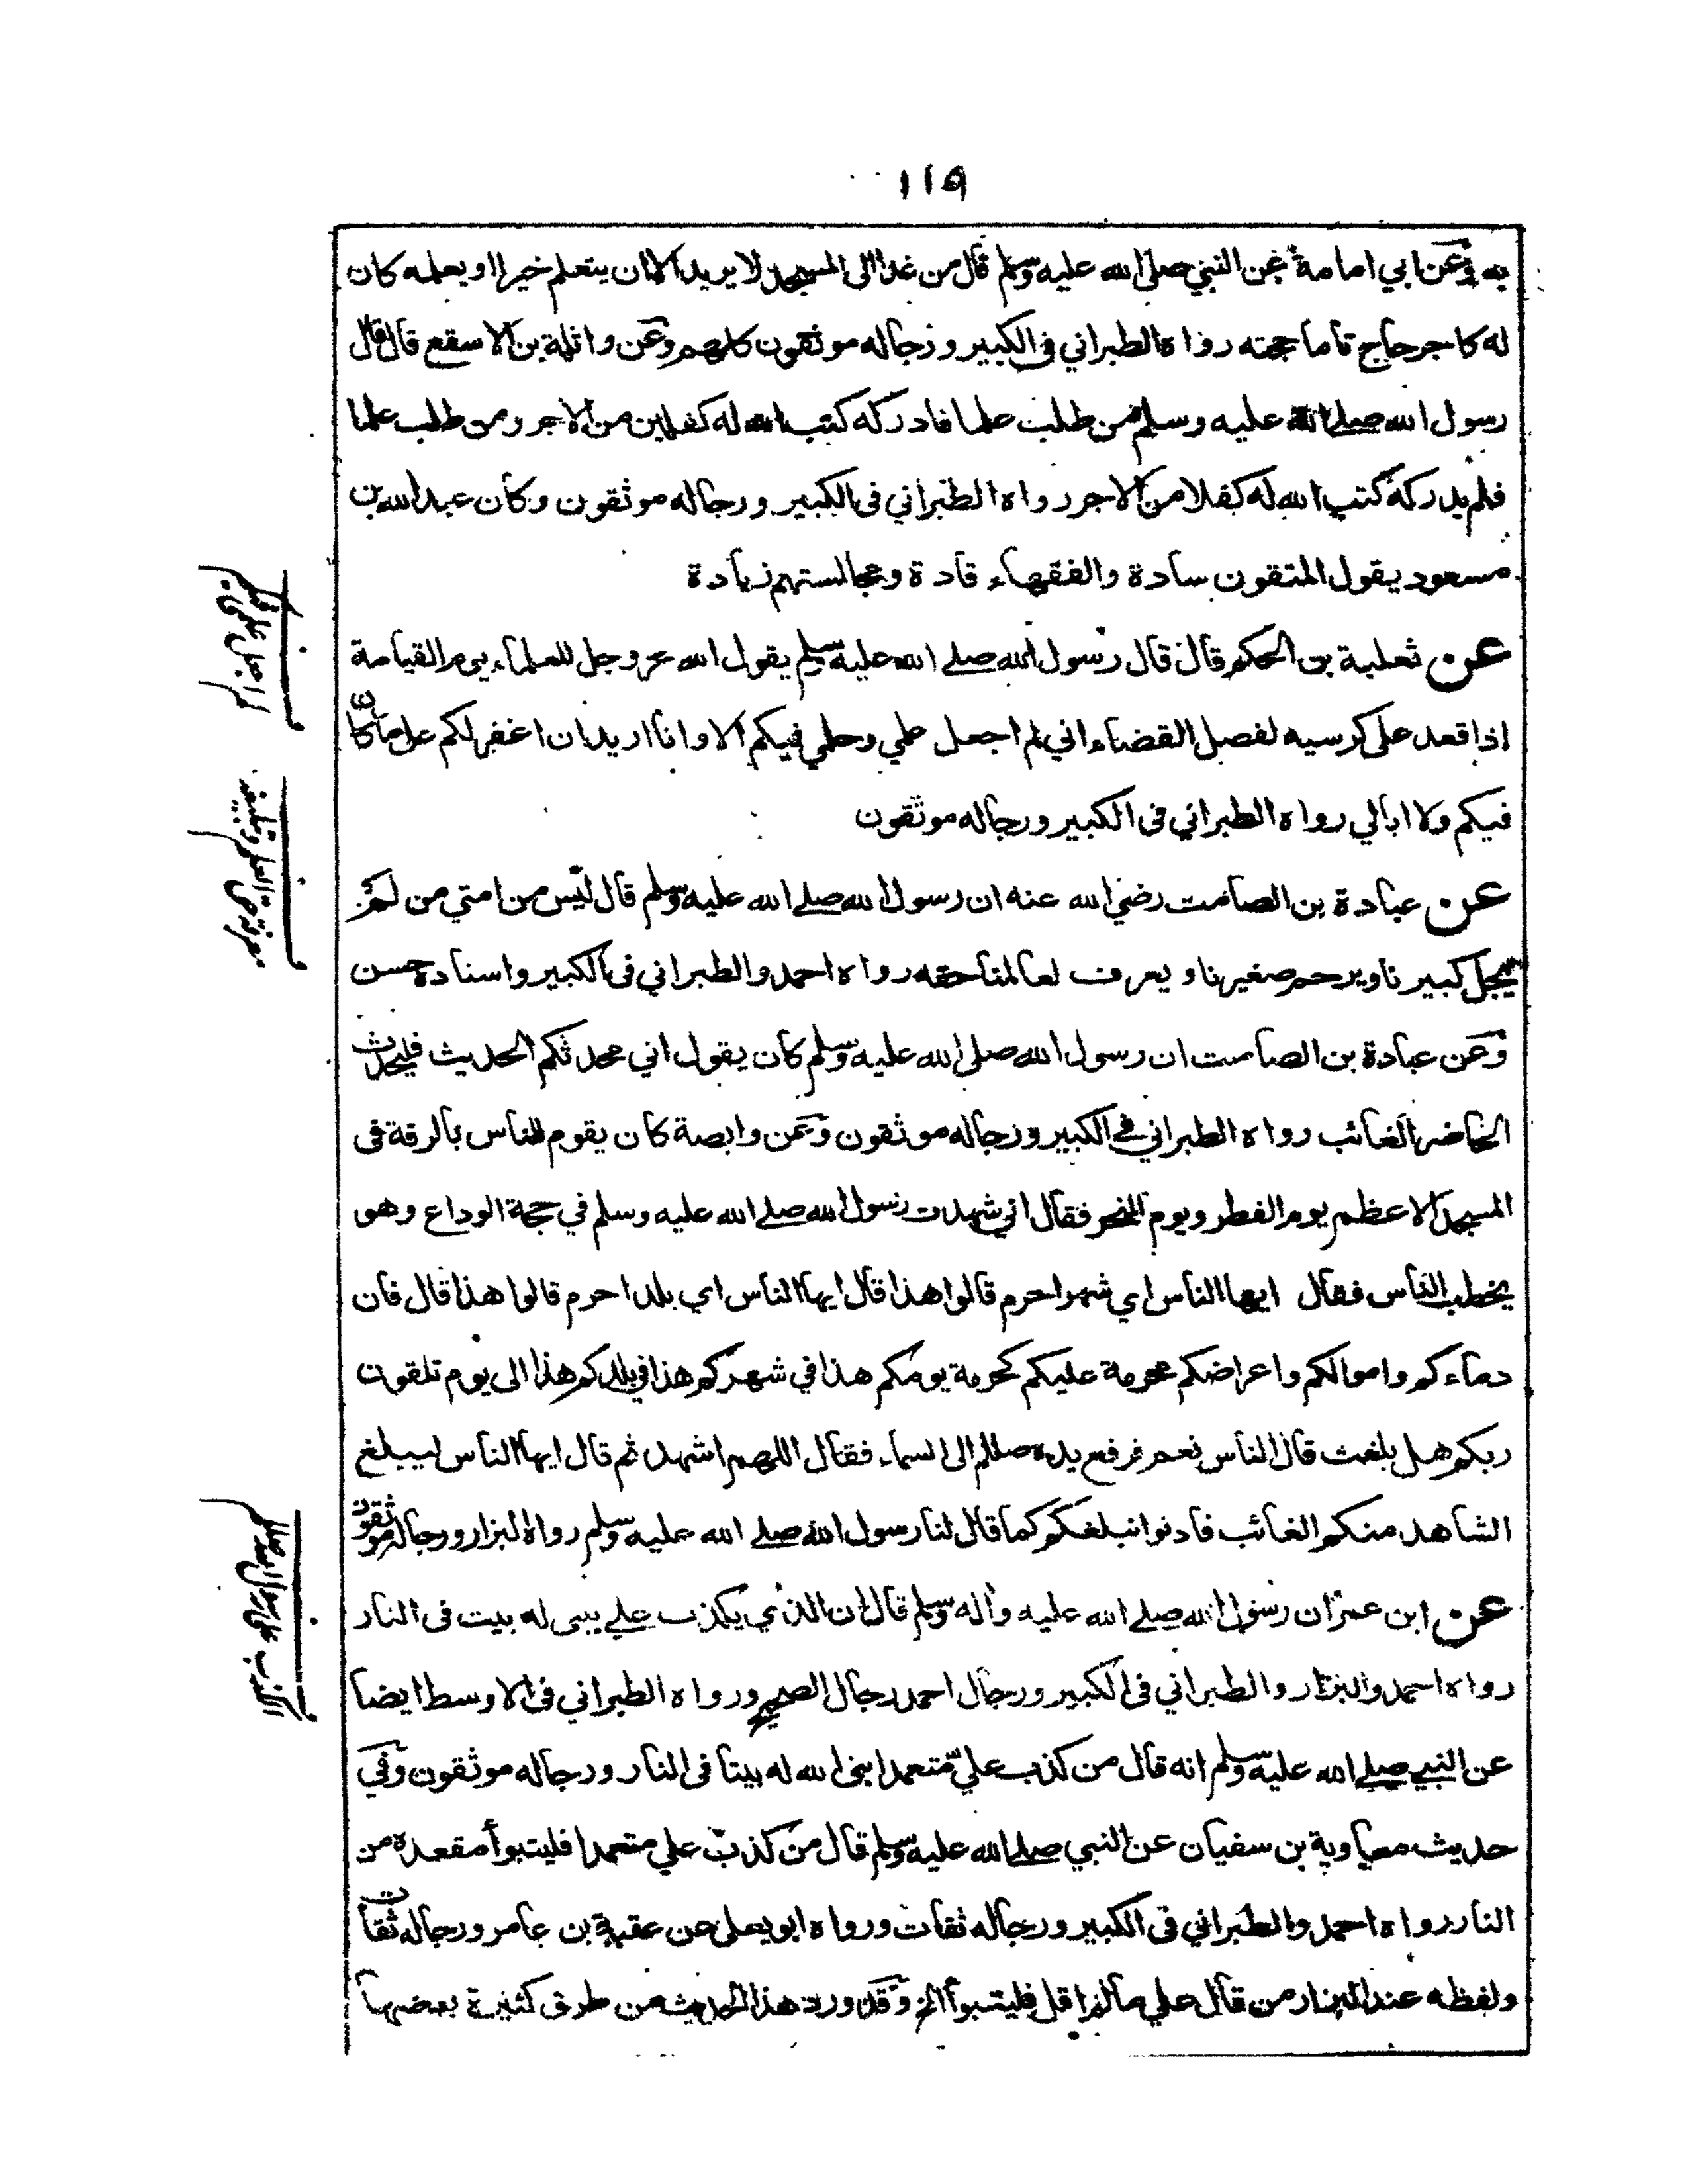 ١١٩
به وعن ابي امامة عن النبي صلى الله عليه وسلم قال من غدا الى المسجد لا يريد الا ان يتعلم خيرا او يعلمه كان
له كاجر حاج تاما حجته رواه الطبراني فى الكبير ورجاله موثقون كلهم وعن واثلة بن الاسقع قال قال
رسول الله صلى الله عليه وسلم من طلب علما فادركه كتب الله له كفلين من الاجر ومن طلب علما
فلم يدركه كتب الله له كفلا من الاجر رواه الطبراني فى الكبير ورجاله موثقون وكان عبد الله بن
مسعود يقول المتقون سادة والفقهاء قادة ومجالستهم زيادة
عن ثعلبة بن الحكم قال قال رسول الله صلى الله عليه وسلم يقول الله عز وجل للعلماء يوم القيامة
اذا قعد على كرسيه لفصل القضاء اني لم اجعل علمي وحلمي فيكم الا وانا اريد ان اغفر لكم على ما كان
فيكم ولا ابالي رواه الطبراني فى الكبير ورجاله موثقون
عن عبادة بن الصامت رضي الله عنه ان رسول الله صلى الله عليه وسلم قال ليس من امتي من لم
يجل كبيرنا ويرحم صغيرنا ويعرف لعالمنا حقه رواه احمد والطبراني فى الكبير واسناده حسن
وعن عبادة بن الصامت ان رسول الله صلى الله عليه وسلم كان يقول اني محدثكم الحديث فليحدث
الحاضر الغائب رواه الطبراني في الكبير ورجاله موثقون وعن وابصة كان يقوم للناس بالرقة فى
المسجد الاعظم يوم الفطر ويوم النحر فقال اني شهدت رسول الله صلى الله عليه وسلم في حجة الوداع وهو
يخطب الناس فقال ايها الناس اي شهر احرم قالوا هذا قال ايها الناس اي بلد احرم قالوا هذا قال فان
دماءكم واموالكم واعراضكم محرمة عليكم كحرمة يومكم هذا في شهركم هذا في بلدكم هذا الى يوم تلقون
ربكم هل بلغت قال الناس نعم فرفع يده صللم الى السماء فقال اللهم اشهد ثم قال ايها الناس ليبلغ
الشاهد منكم الغائب فادنوا نبلغكم كما قال لنا رسول الله صلى الله عليه وسلم رواه البزار ورجاله موثقون
عن ابن عمر ان رسول الله صلى الله عليه وآله وسلم قال ان الذي يكذب علي يبنى له بيت فى النار
رواه احمد والبزار والطبراني فى الكبير ورجال احمد رجال الصحيح ورواه الطبراني فى الاوسط ايضا
عن النبي صلى الله عليه وسلم انه قال من كذب علي متعمدا بنى الله له بيتا فى النار ورجاله موثقون وفي
حديث معاوية بن سفيان عن النبي صلى الله عليه وسلم قال من كذب علي متعمدا فليتبوأ مقعده من
النار رواه احمد والطبراني فى الكبير ورجاله ثقات ورواه ابو يعلى عن عقبة بن عامر ورجاله ثقات
ولفظه عند البزار من قال علي ما لم اقل فليتبوأ الخ وقد ورد هذا الحديث من طرق كثيرة بعضها
لم اجعل علمي فيكم
معرفة حق العلم وتبليغه
الكذب على رسول الله صللم